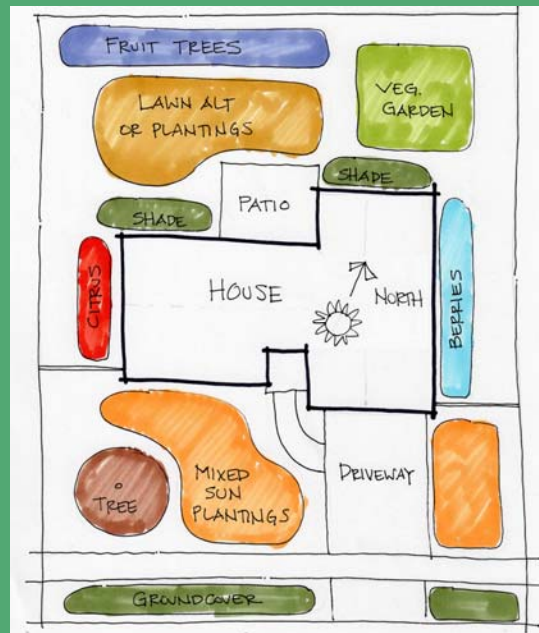 FRUIT TREES
LAWN ALT
OR PLANTINGS
VEG.
GARDEN
SHADE
PATIO
SHADE
CITRUS
HOUSE
NORTH
BERRIES
MIXED
SUN
PLANTINGS
TREE
DRIVEWAY
GROUNDCOVER